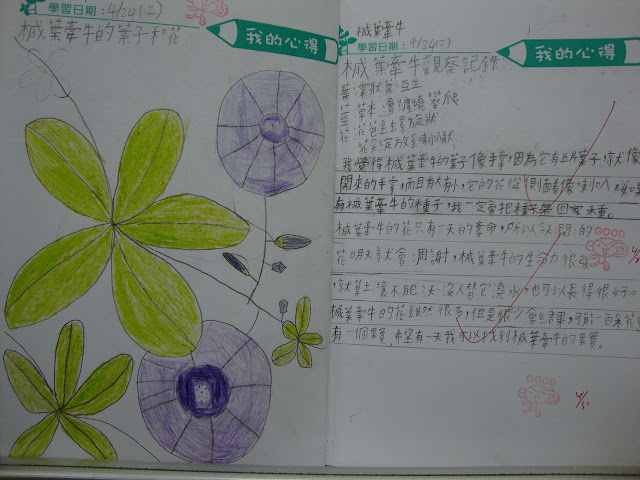 學習日期：4/24(二)
槭葉牽牛的葉子和花
我的心得
GOOD
槭葉牽牛
學習日期：4/24(二)
我的心得
槭葉牽牛觀察記錄
葉：掌狀葉、互生
莖：草本、會纏繞攀爬
花：花苞呈螺旋狀
花朵綻放呈喇叭狀
我覺得槭葉牽牛的葉子像手掌，因為它有五片葉子，就像
開來的手掌，而且有大有小，它的花從側面看像喇叭，如果
有槭葉牽牛的種子，我一定會把種子帶回家種。
槭葉牽牛的花只有一天的壽命，所以今天開的
花明天就會凋謝，槭葉牽牛的生命力很強
，就算土壤不肥沃、沒人替它澆水，也可以長得很好。
槭葉牽牛的花雖然很多，但是很少會結果，可能一百朵花
有一個果實，希望有一天我可以找到槭葉牽牛的果實。
GOOD
GOOD